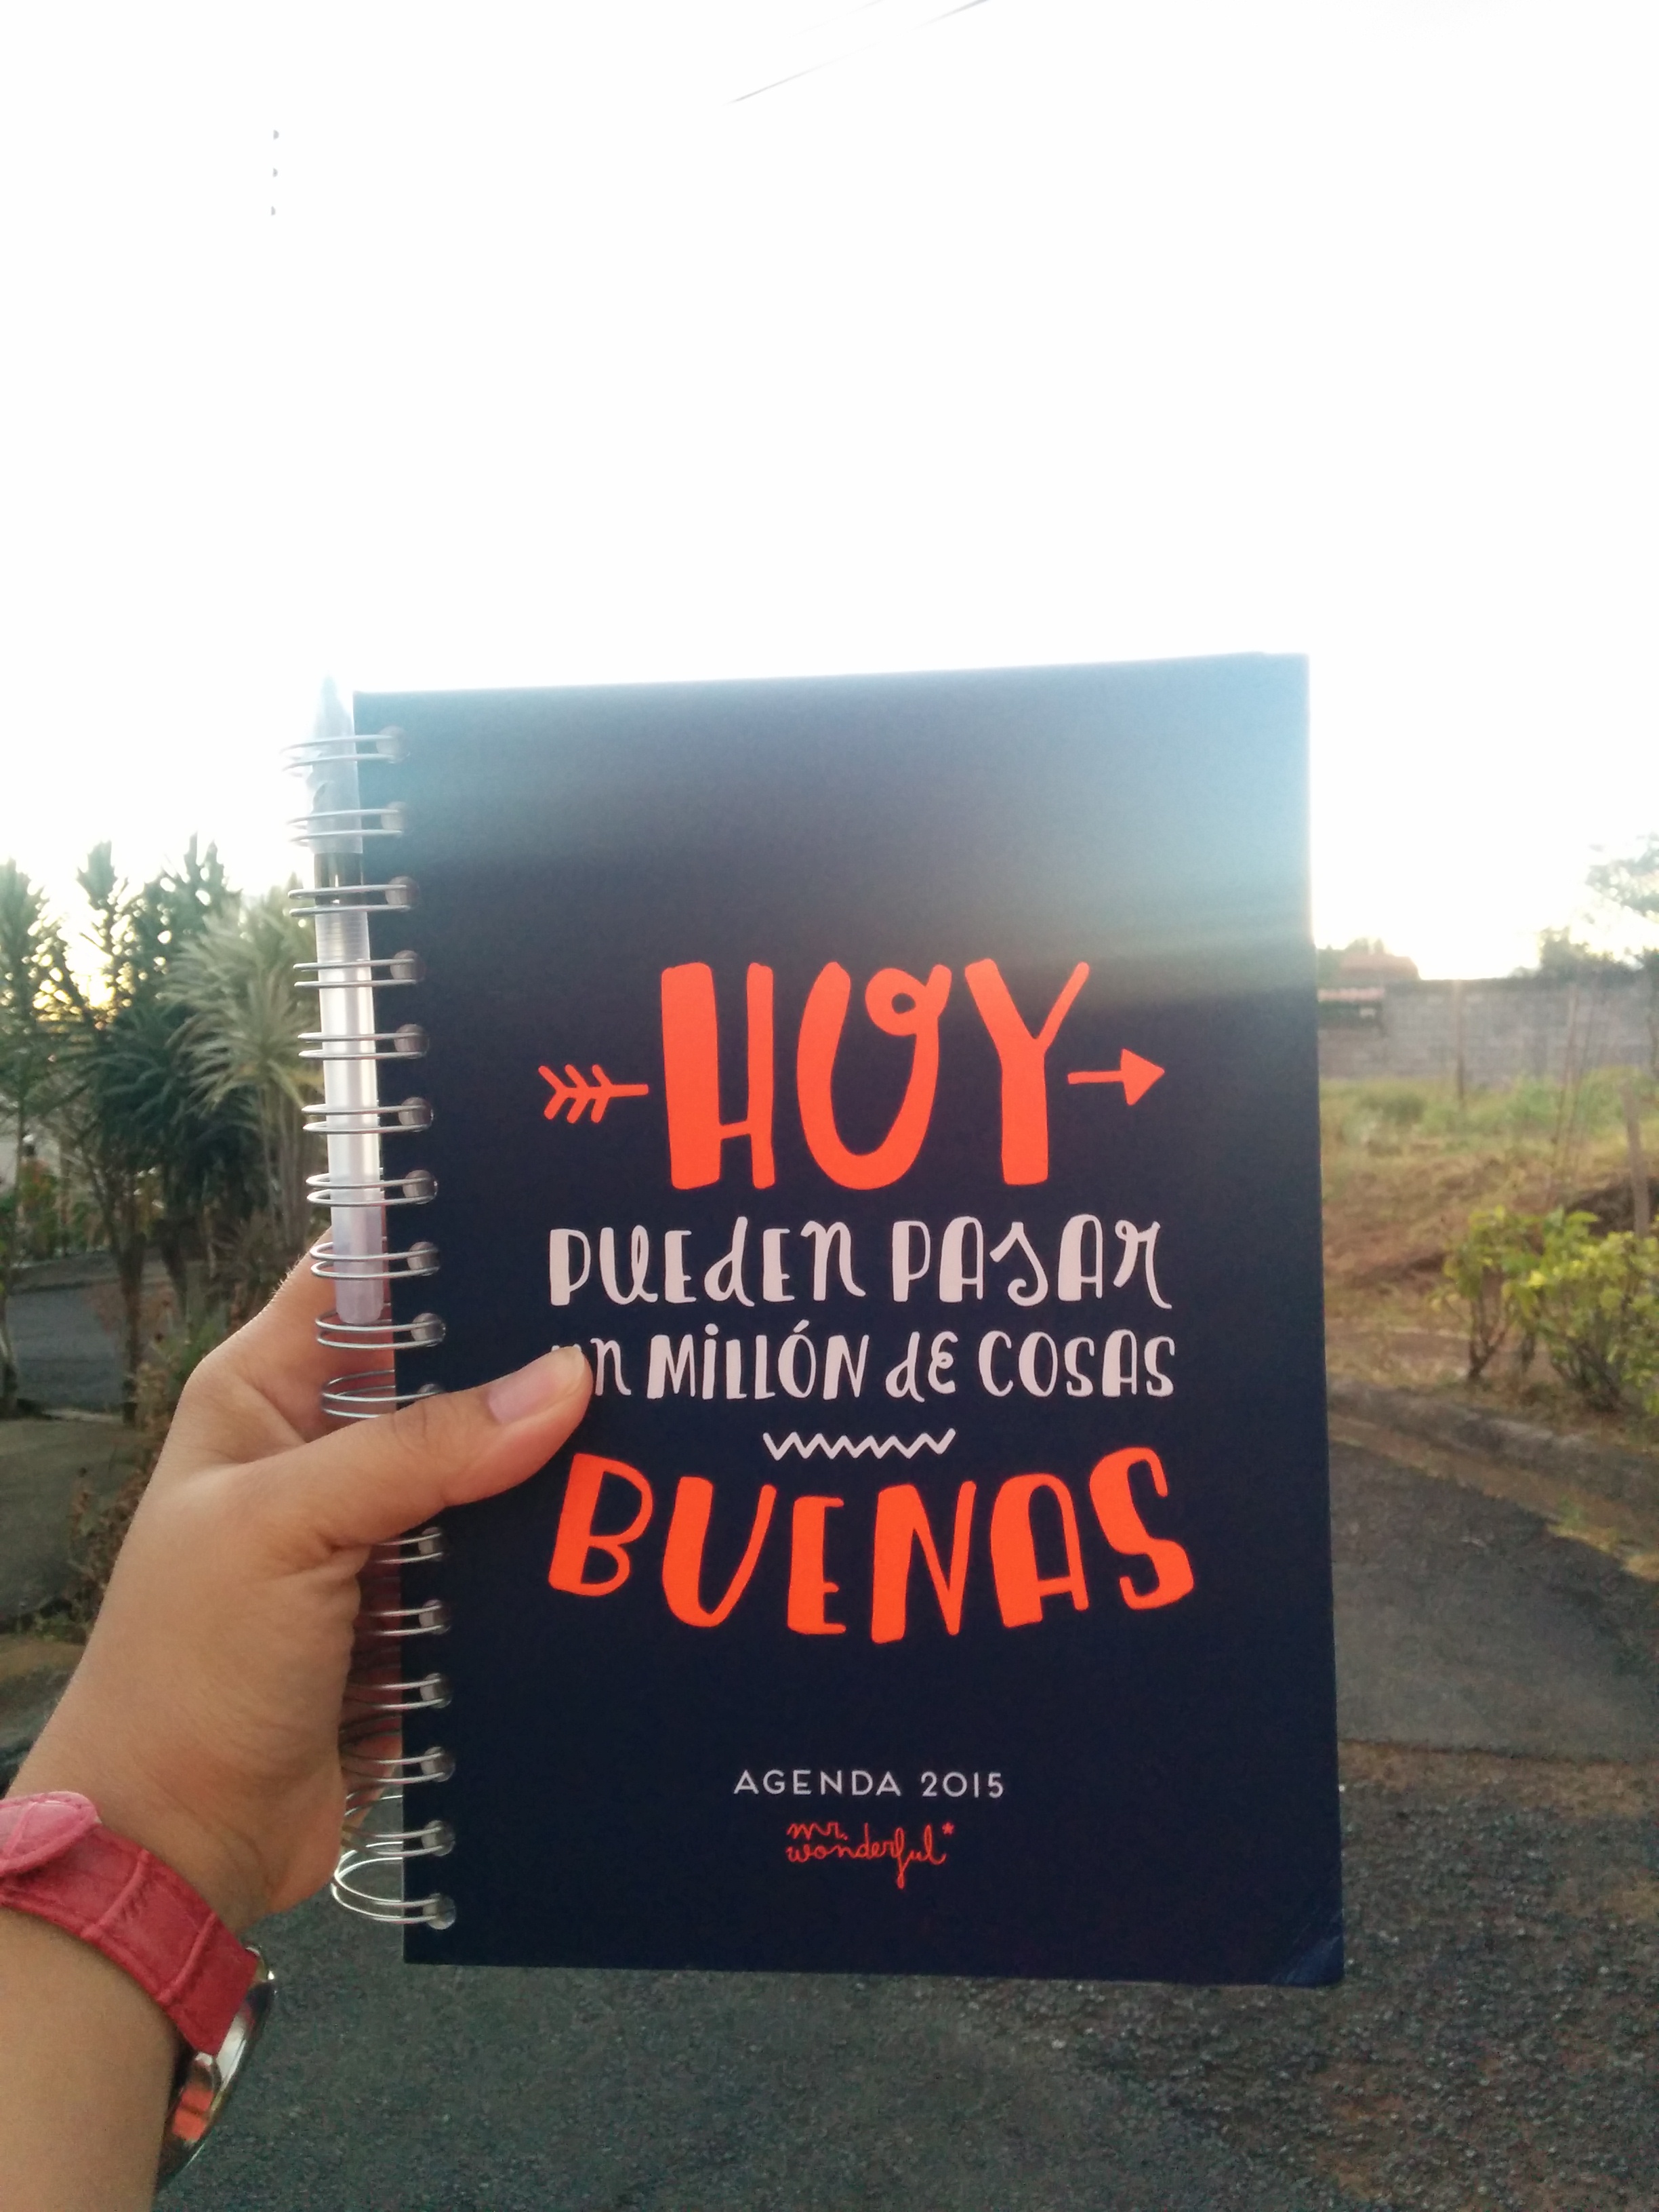 HOY
PUEdEn PASAR
un MiLLÓN dE COSAS
BUENAS
AGENDA 2015
mr.
wonderful*